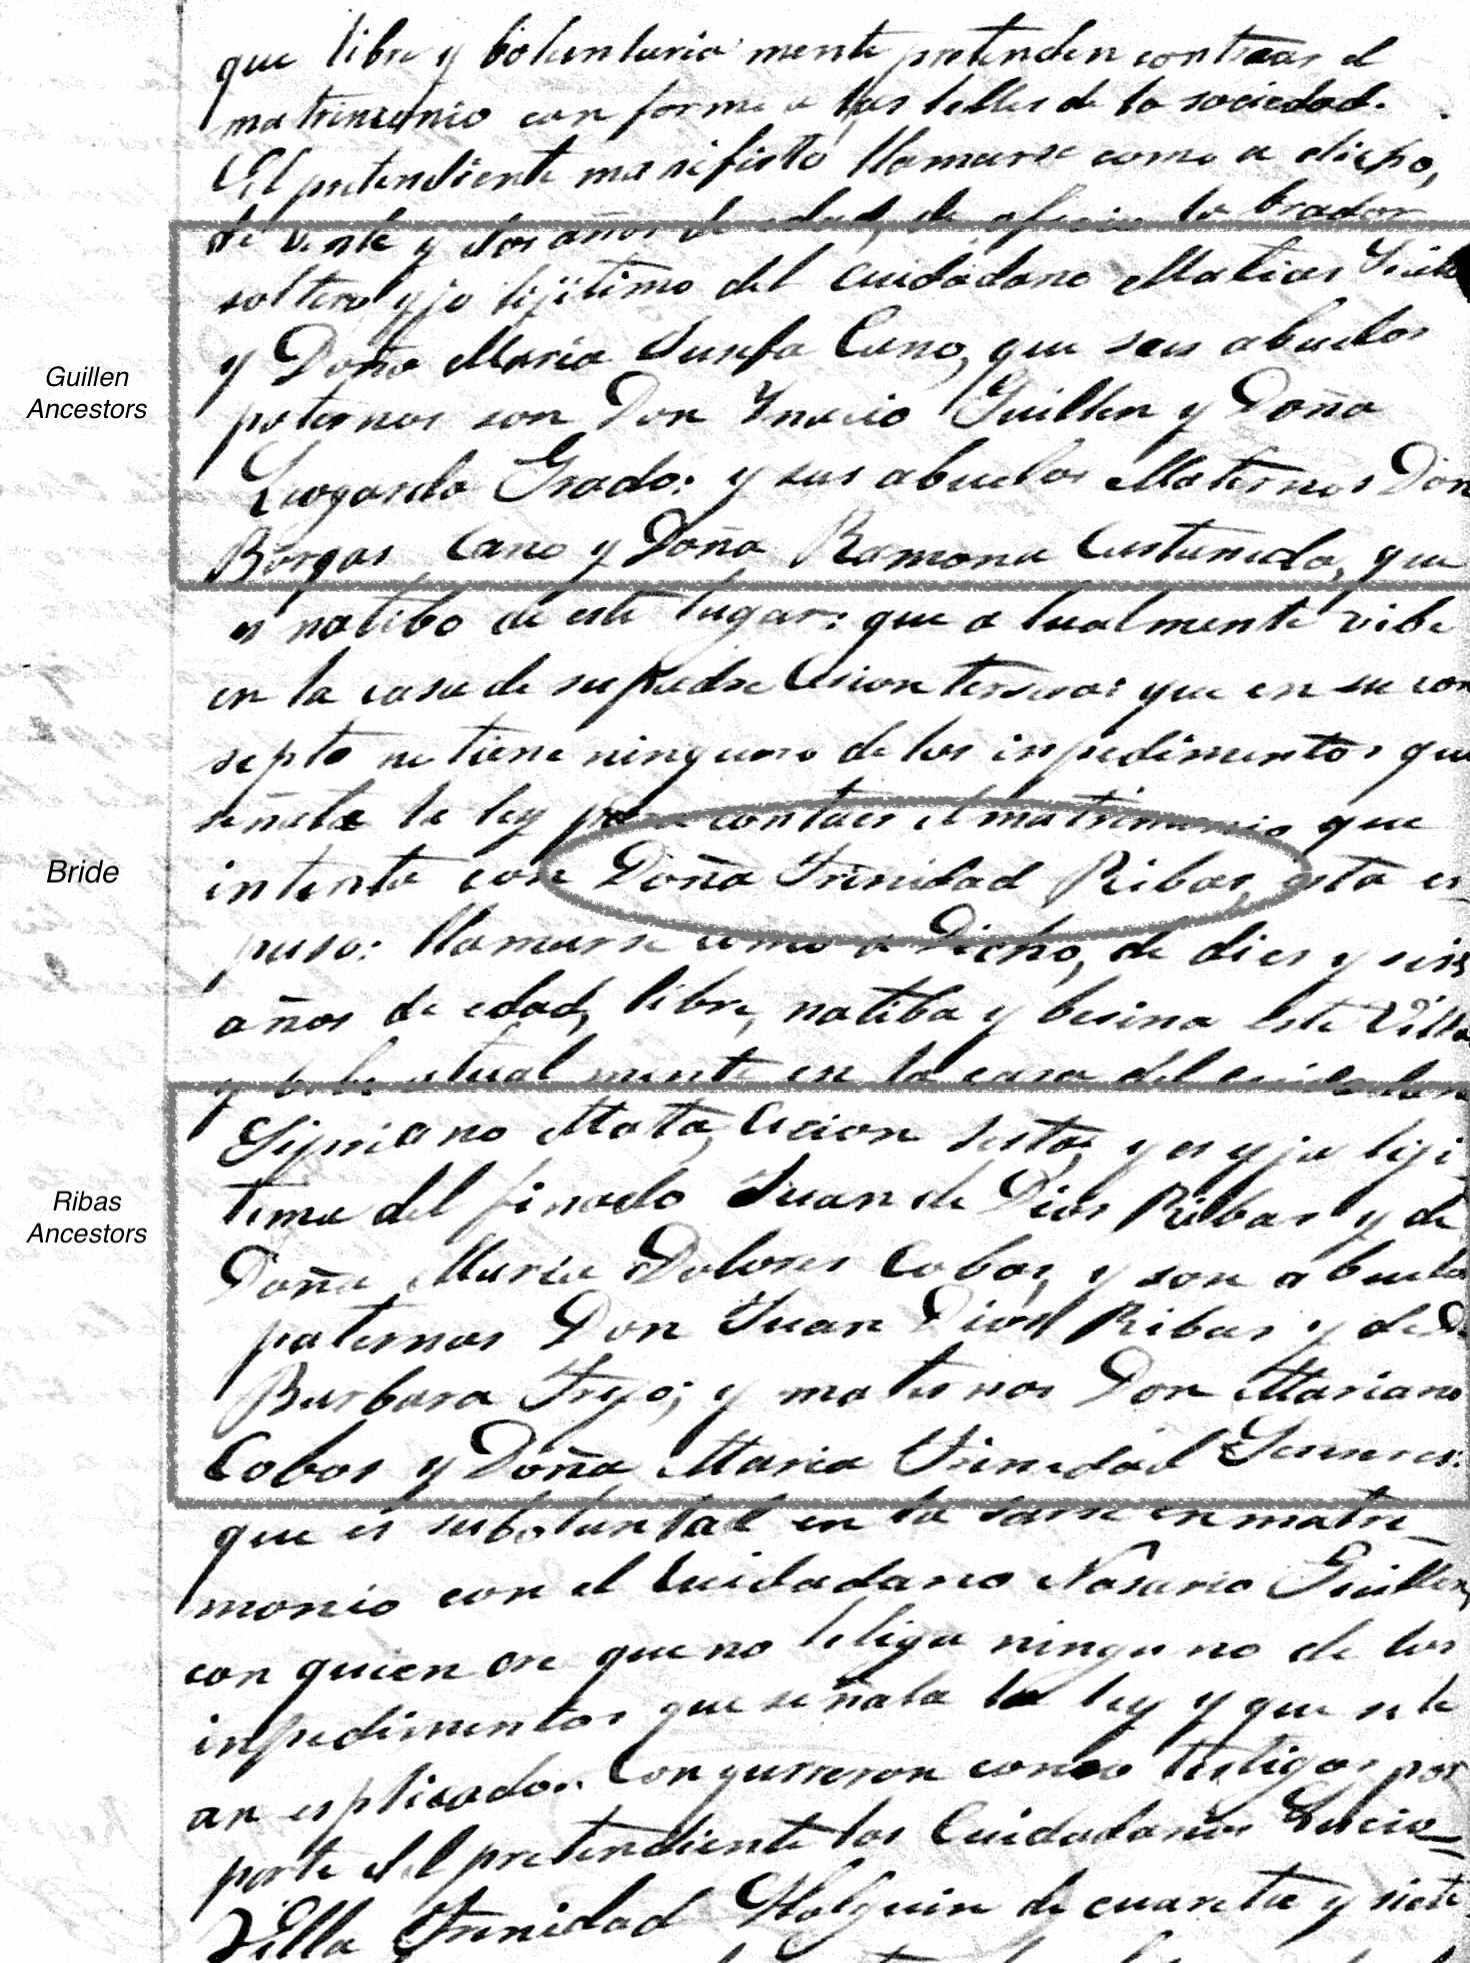 que libre y boluntaria mente pretenden contraer el
matrimonio con forme a las lelles de la sociedad.
El pretendiente manifisto llamarse como a dicho,
de vente y dos años de edad, de oficio la brador
soltero yjo lijitimo del cuidadano Matias
Guillen
Ancestors
y Doña Maria Cano, que sus abuelos
paternos son Don Ynacio Guillen y Doña
Luogarda Grado: y sus abuelos Maternos Don
Borgas Cano y Doña Ramona Castaneda, que
es natibo de este lugar: que a tualmente vibe
en la casa de su padre tersera: que en su con
septo ne tiene ninguno de los inpedimentos que
señala la ley para contaer el matrimonio que
Bride
intenta con Doña Trinidad Ribas, esta es
puso: llamarse como a Dicho, de dies y seis
años de edad, libre, natiba y besina este Villa
y atual mente en la casa del cuidadano
Sipriano Mata, sesta, y es yja liji
Ribas
Ancestors
tima del finado Juan de Dios Ribas y de
Doña Maria Dolores Cobos, y son abuelos
paternos Don Juan Dios Ribas y de D.
Barbara Trejo; y maternos Don Mariano
Cobos y Doña Maria Trinidad
que es su boluntal en la sarse en matri_
monio con el Cuidadano Nasario Guillen,
con quien cre que no le liga ningu no de los
inpedimentos que señala la ley y que se le
an esplicado. Con gurreron como testigos por
parte del pretendiente los Cuidadanos Lucio_
Villa Trinidad Holguin de cuareta y siete